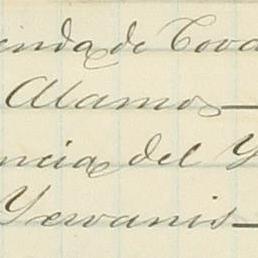 ienda de Cova
Alamos —
ncia del Y
Yewanis —